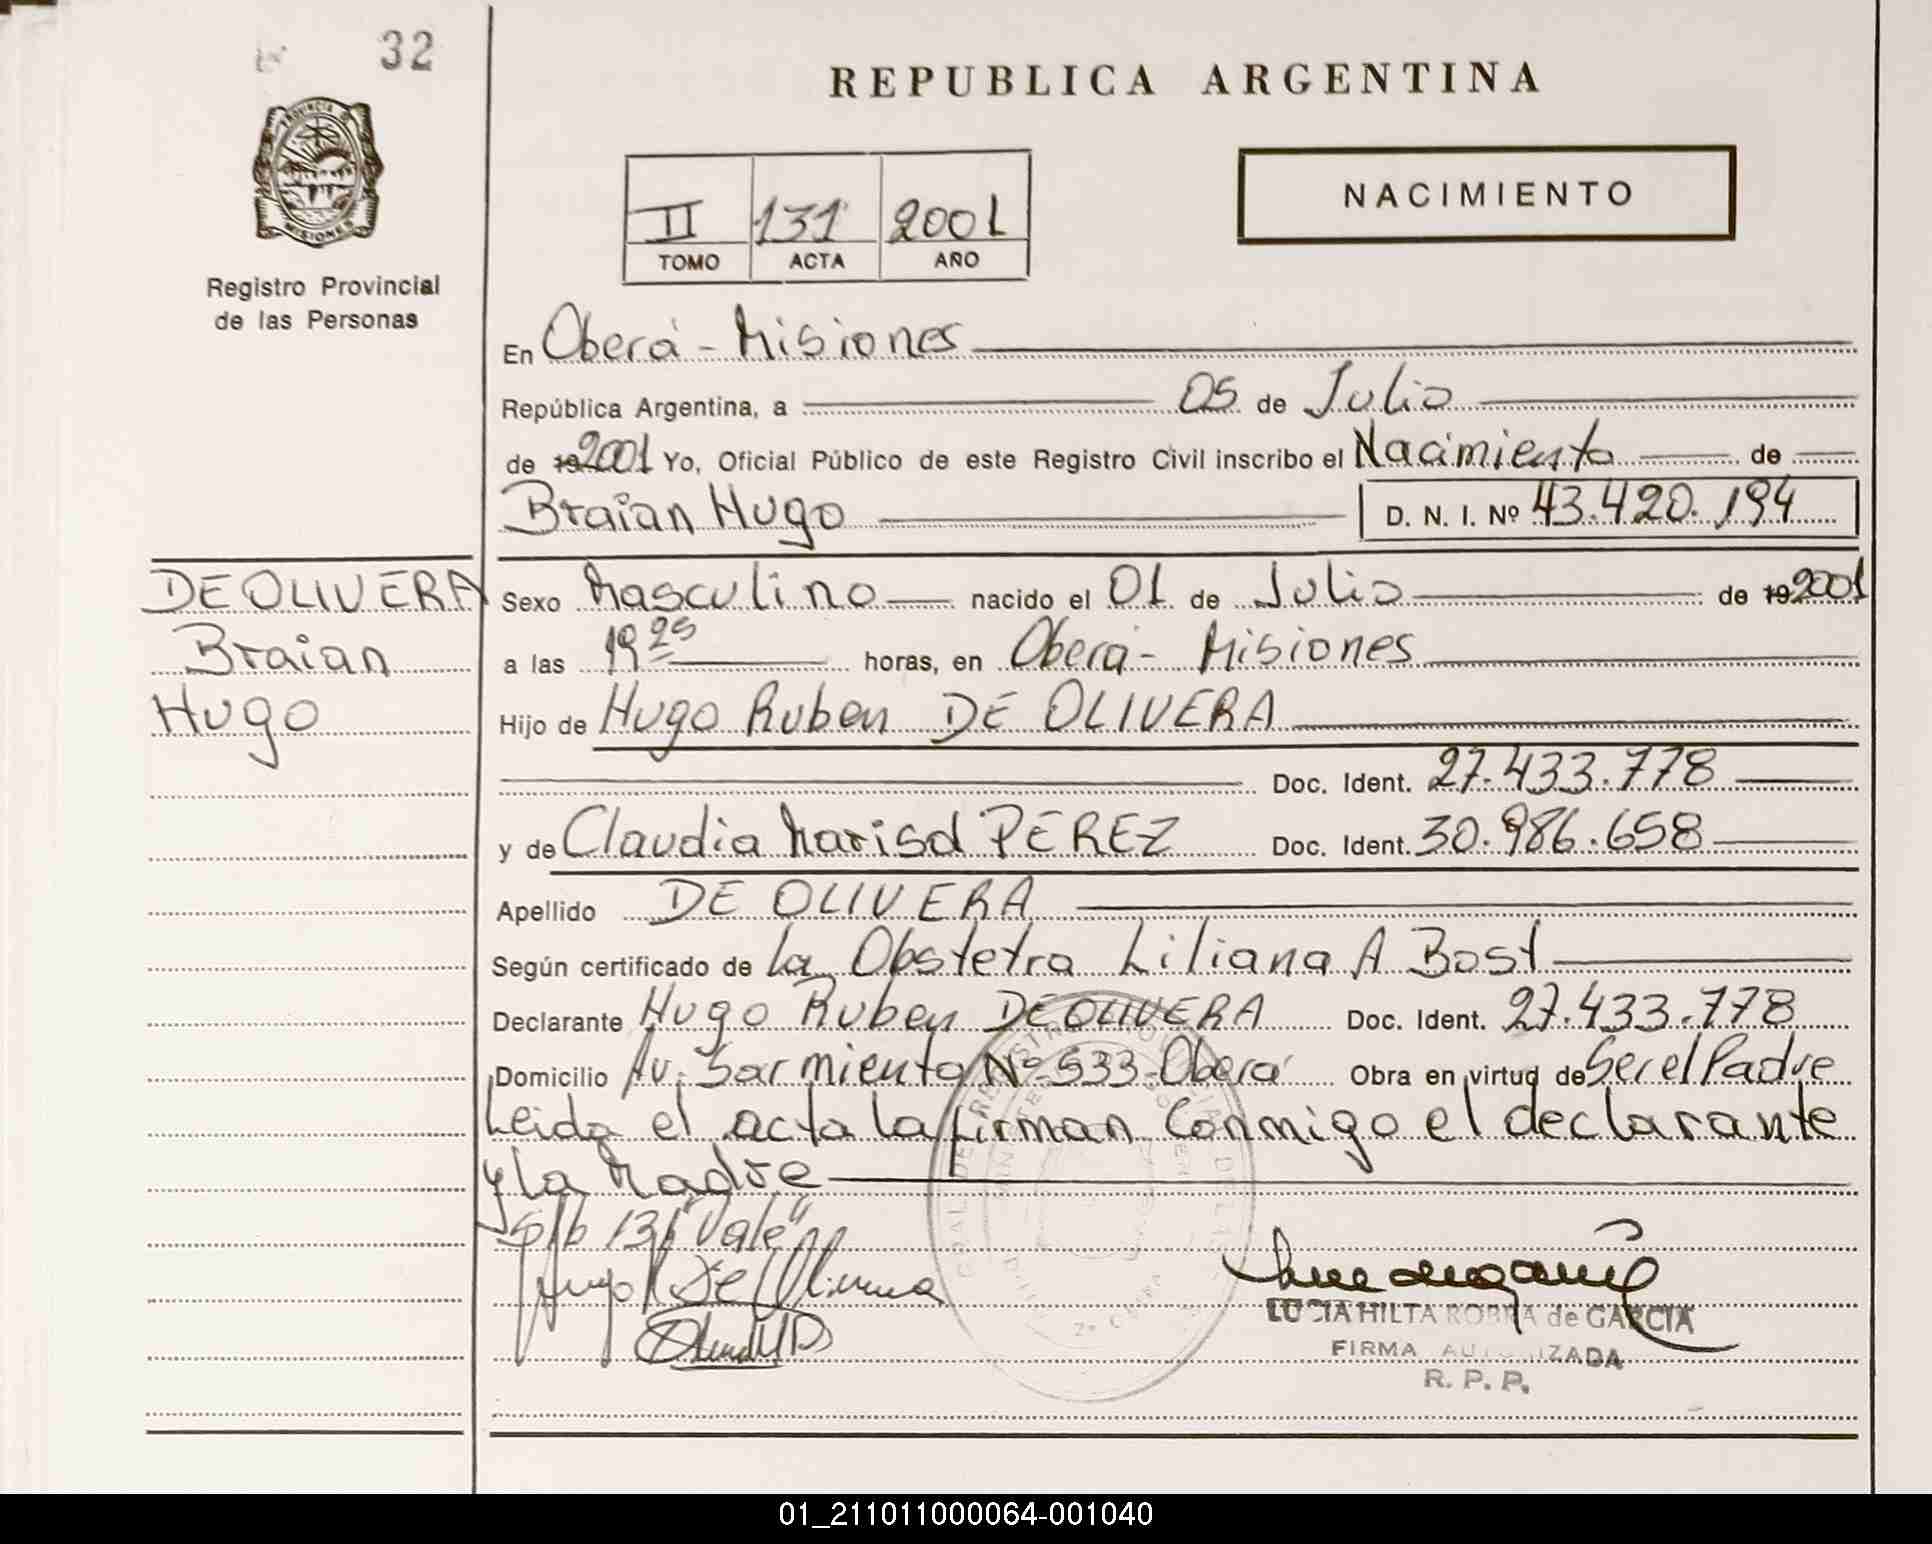 32
REPUBLICA ARGENTINA
PROVINCIA D
MISIONES
NACIMIENTO
II 131 2001
TOMO ACTA AÑO
Registro Provincial
de las Personas
En Oberá - Misiones
República Argentina, a 05 de Julio
de 19 2001 Yo, Oficial Público de este Registro Civil inscribo el Nacimiento de
Braian Hugo D. N. I. Nº 43.420.194
DE OLIVERA
Braian
Hugo
Sexo Masculino nacido el 01 de Julio de 19 2001
a las 19 25 horas, en Oberá - Misiones
Hijo de Hugo Ruben DE OLIVERA
Doc. Ident. 27.433.778
y de Claudia Marisol PEREZ Doc. Ident. 30.986.658
Apellido DE OLIVERA
Según certificado de la Obstetra Liliana A Bost
Declarante Hugo Ruben DE OLIVERA Doc. Ident. 27.433.778
Domicilio Av. Sarmiento Nº 533-Oberá Obra en virtud de Ser el Padre
Leida el acta la firman Conmigo el declarante
y la Madre
s/b 131 "Vale"
Hugo R De Olivera
LUCIA HILTA ROBRA de GARCIA
FIRMA AUTORIZADA
R. P. P.
01_211011000064-001040